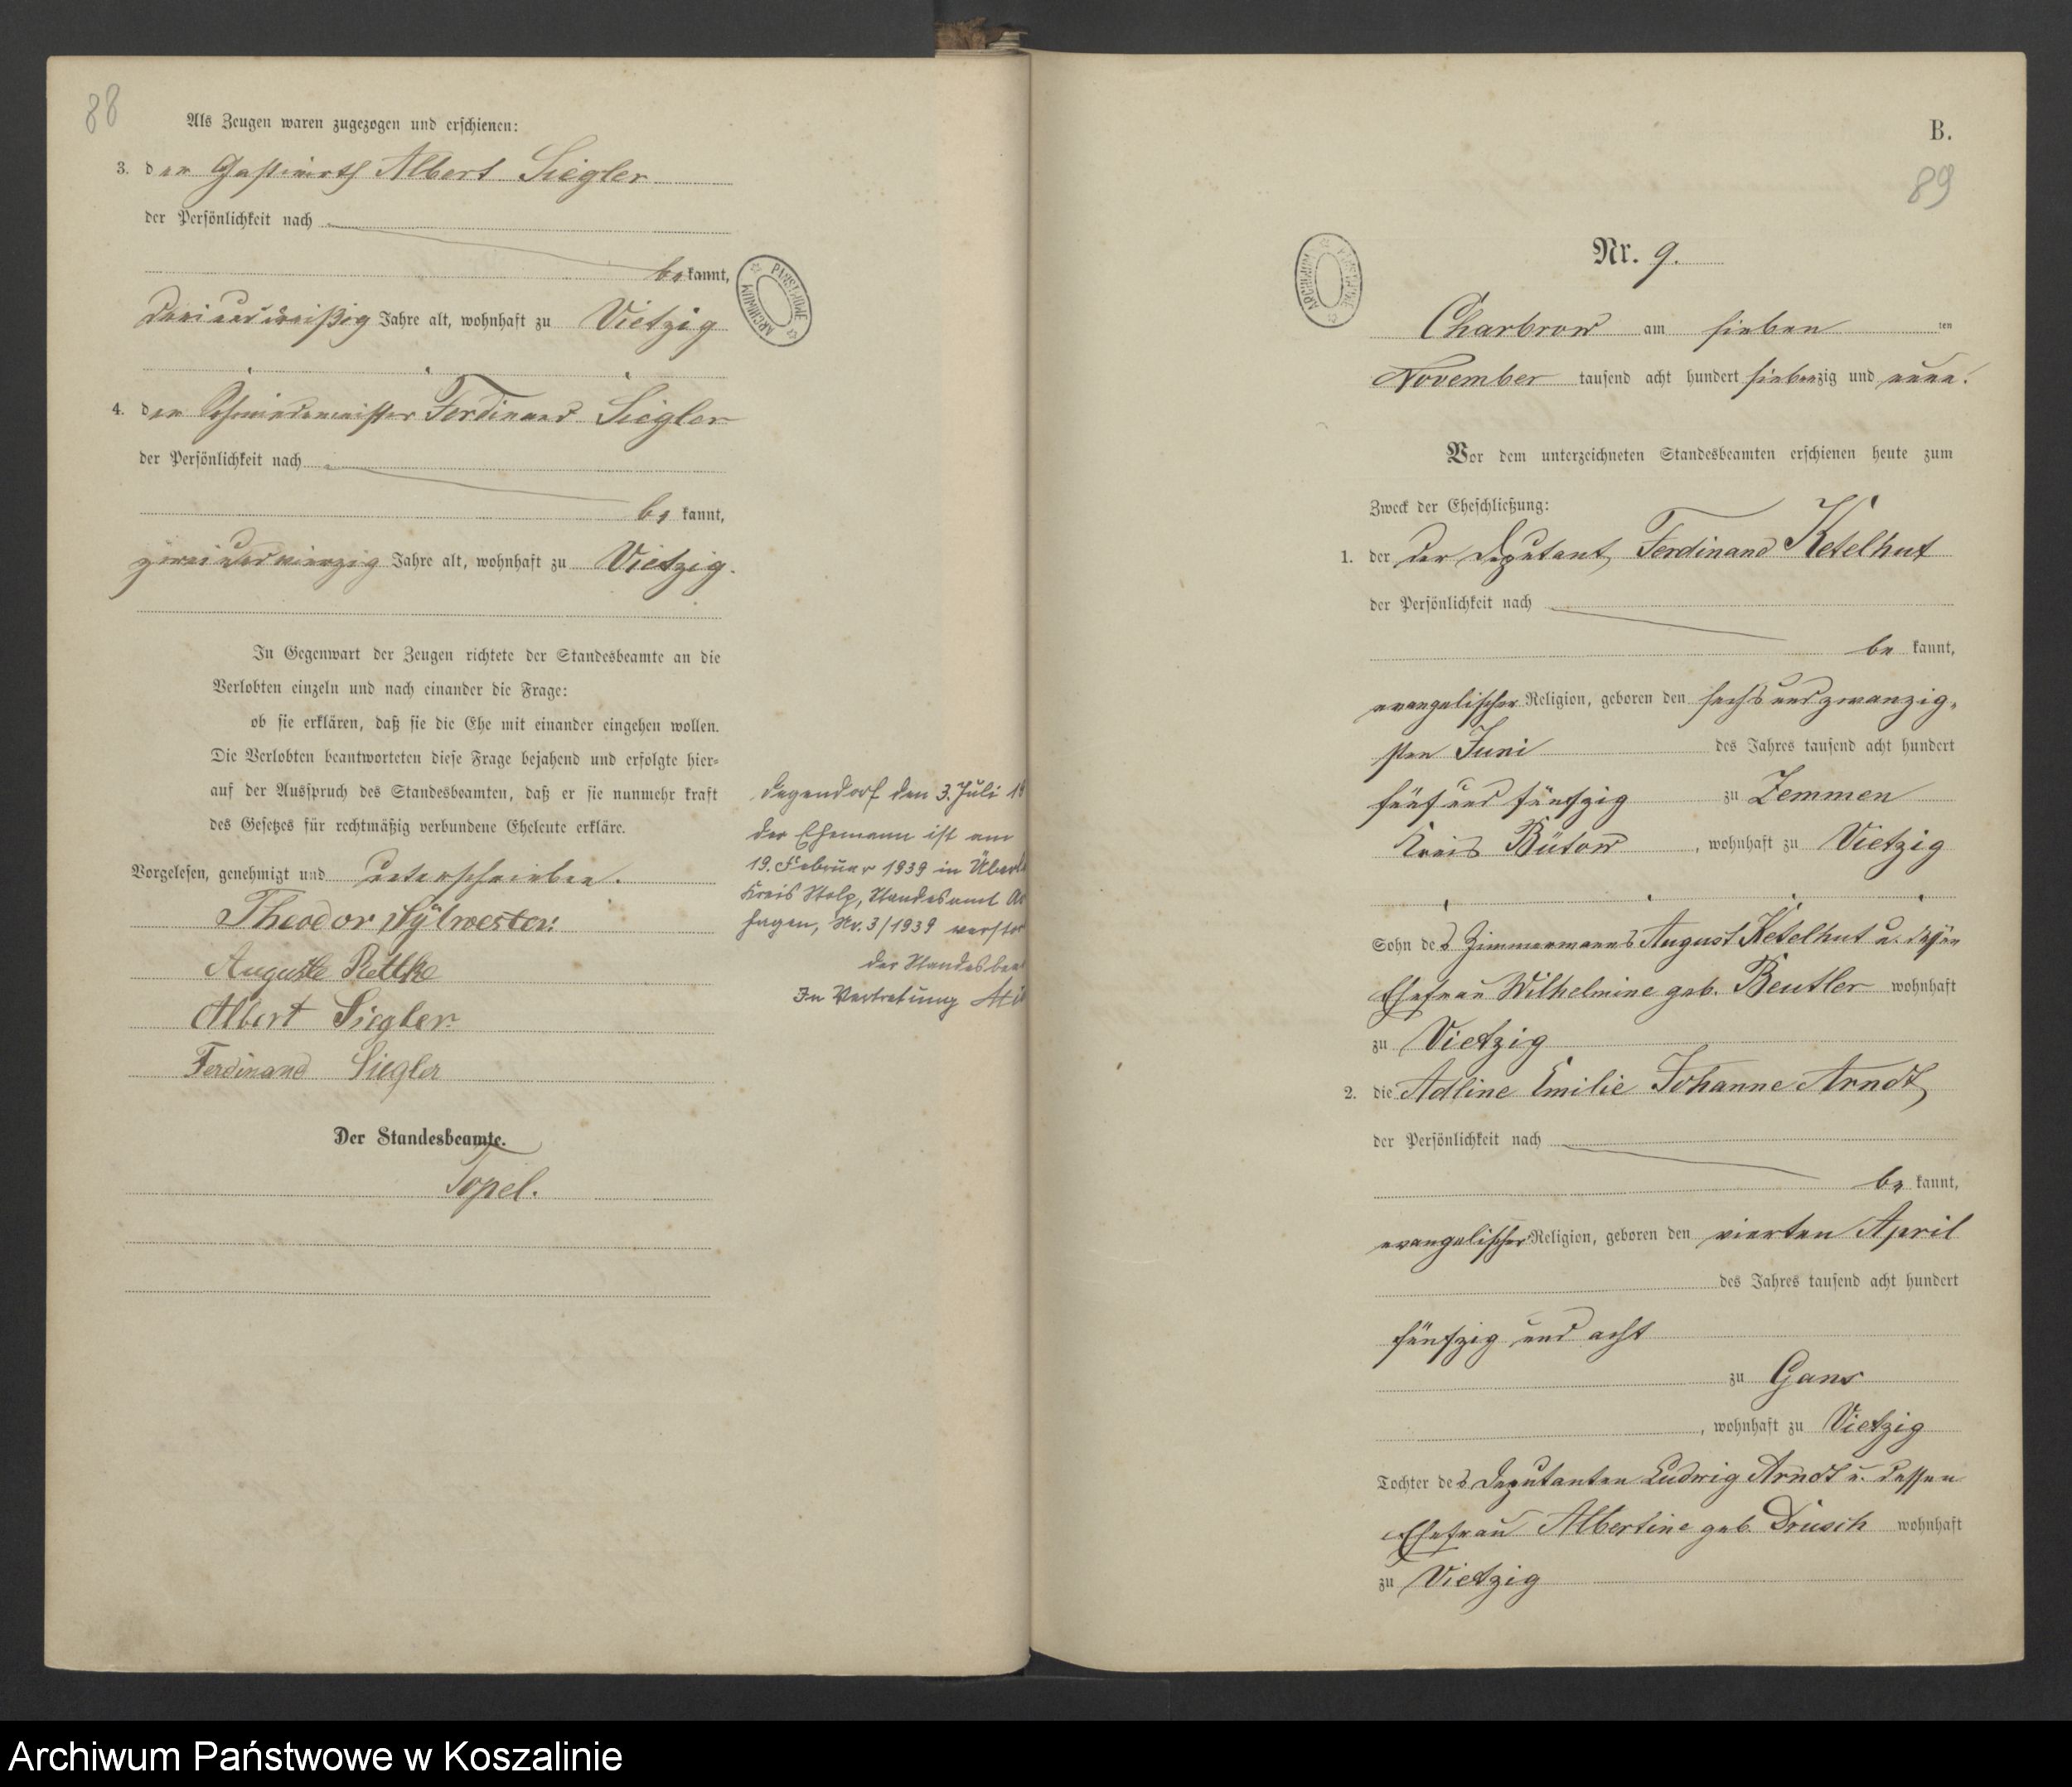 88
Als Zeugen waren zugezogen und erschienen:
3. den Gastwirth Albert Siegler
der Persönlichkeit nach
bekannt,
dreiunddreißig Jahre alt, wohnhaft zu Vietzig
4. den Schmiedemeister Ferdinand Siegler
der Persönlichkeit nach
be kannt,
zweiundvierzig Jahre alt, wohnhaft zu Vietzig.
In Gegenwart der Zeugen richtete der Standesbeamte an die
Verlobten einzeln und nach einander die Frage:
ob sie erklären, daß sie die Ehe mit einander eingehen wollen.
Die Verlobten beantworteten diese Frage bejahend und erfolgte hier-
auf der Ausspruch des Standesbeamten, daß er sie nunmehr kraft
des Gesetzes für rechtmäßig verbundene Eheleute erkläre.
Vorgelesen, genehmigt und unterschrieben.
Theodor Sylwester
Auguste
Albert Siegler
Ferdinand Siegler
Der Standesbeamte.
Topel.
Degendorf den 3. Juli
der Ehemann ist am
19. Februar 1939 in
Kreis Stolp, Standesamt
hagen, Nr. 3/1939
Der
In Vertretung
ARCHIWUM PAŃSTWOWE
B.
89
ARCHIWUM PAŃSTWOWE
Nr. 9.
Charbrow am sieben ten
November tausend acht hundert siebenzig und neun.
Vor dem unterzeichneten Standesbeamten erschienen heute zum
Zweck der Eheschließung:
1. der der Deputant Ferdinand Ketelhut
der Persönlichkeit nach
be kannt,
evangelischer Religion, geboren den sechsundzwanzig-
sten Juni des Jahres tausend acht hundert
fünf und fünfzig zu Zemmen
Kreis Bütow, wohnhaft zu Vietzig
Sohn des Zimmermanns August Ketelhut u. dessen
Ehefrau Wilhelmine geb. Beutler wohnhaft
zu Vietzig
2. die Adline Emilie Johanne Arndt
der Persönlichkeit nach
be kannt,
evangelischer Religion, geboren den vierten April
des Jahres tausend acht hundert
fünfzig und acht
zu Gans
, wohnhaft zu Vietzig
Tochter des Deputanten Ludwig Arndt u. dessen
Ehefrau Albertine geb. Drusch wohnhaft
zu Vietzig
Archiwum Państwowe w Koszalinie